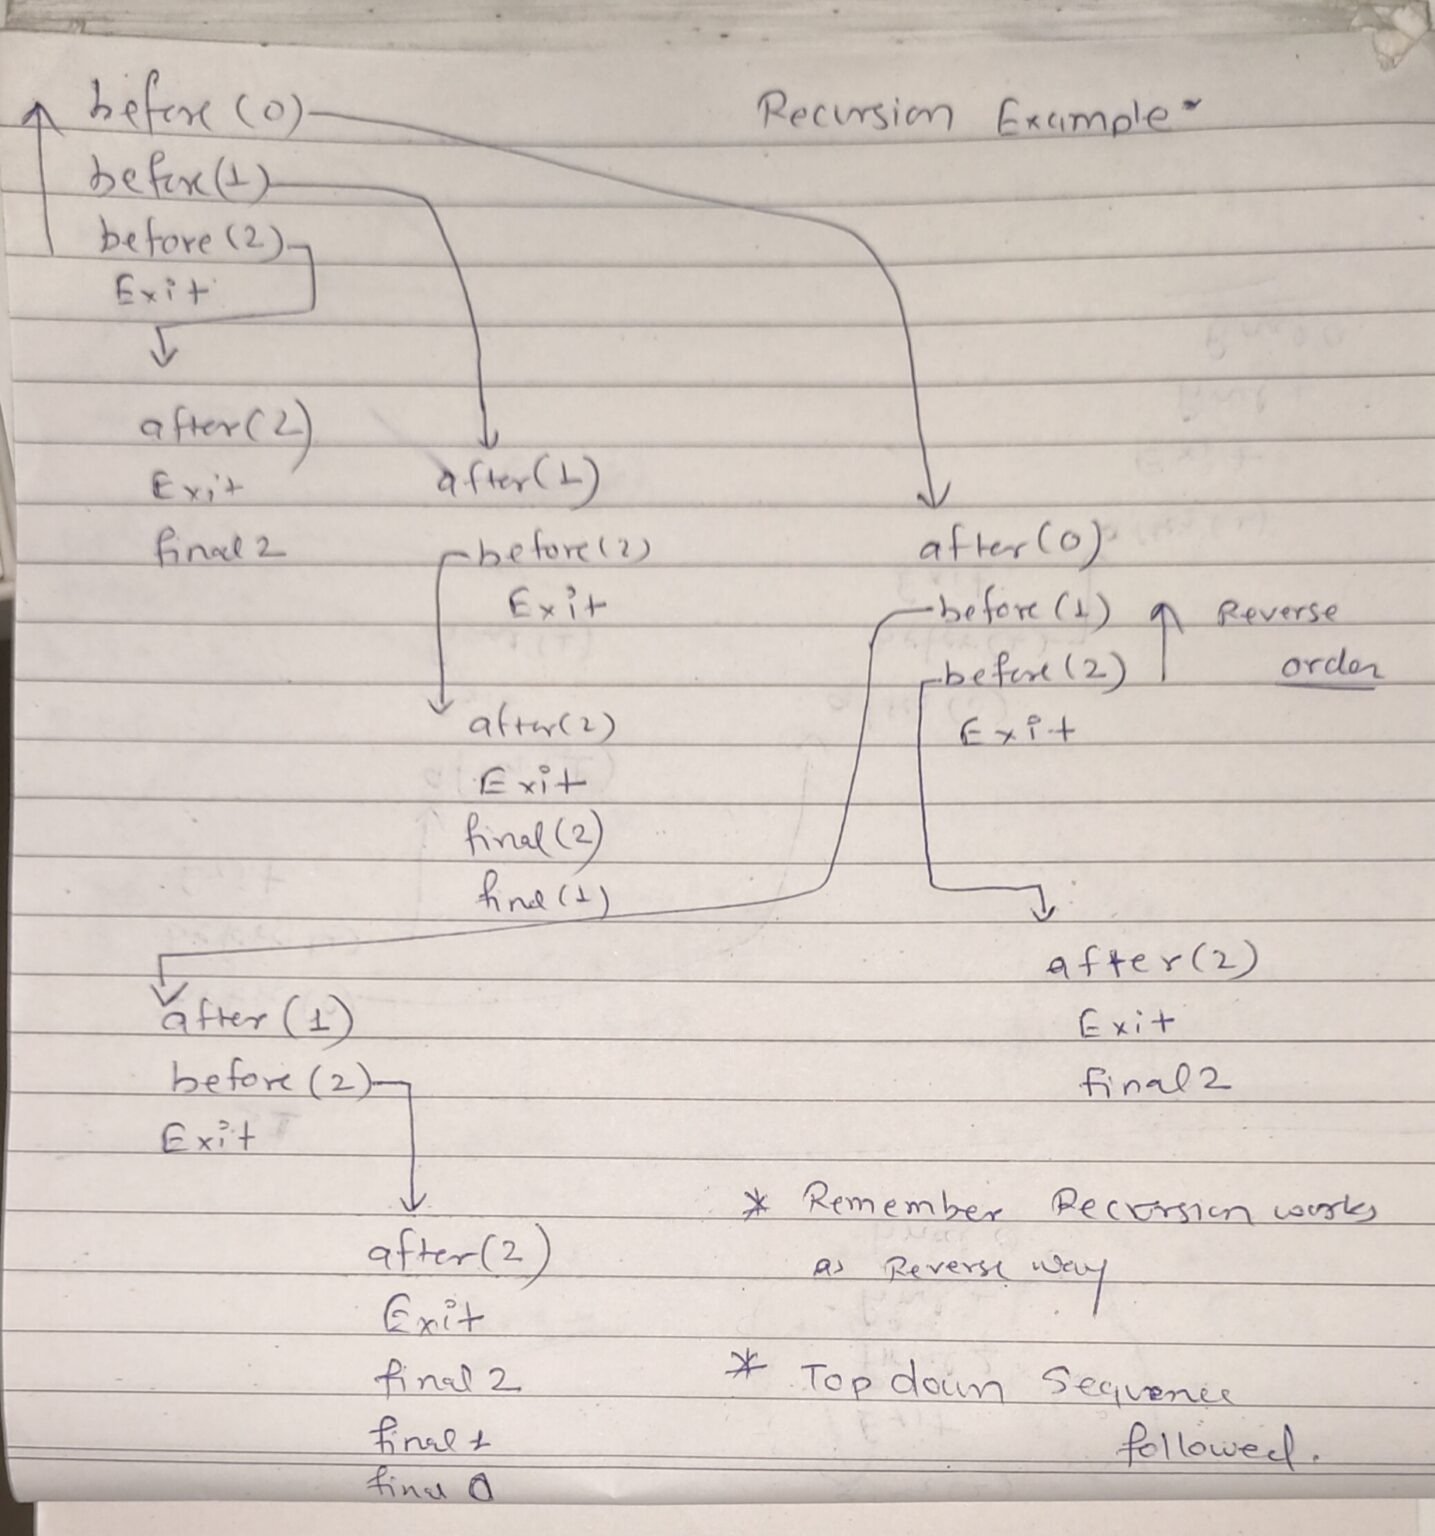 Recursion Example
before (0)
before (1)
before (2)
Exit
after (2)
Exit
final 2
after (1)
before (2)
Exit
after (2)
Exit
final (2)
final (1)
after (0)
before (1)
before (2)
Exit
Reverse
order
after (2)
Exit
final 2
after (1)
before (2)
Exit
after (2)
Exit
final 2
final 1
final 0
* Remember Recursion works
as Reverse way
* Top down Sequence
followed.